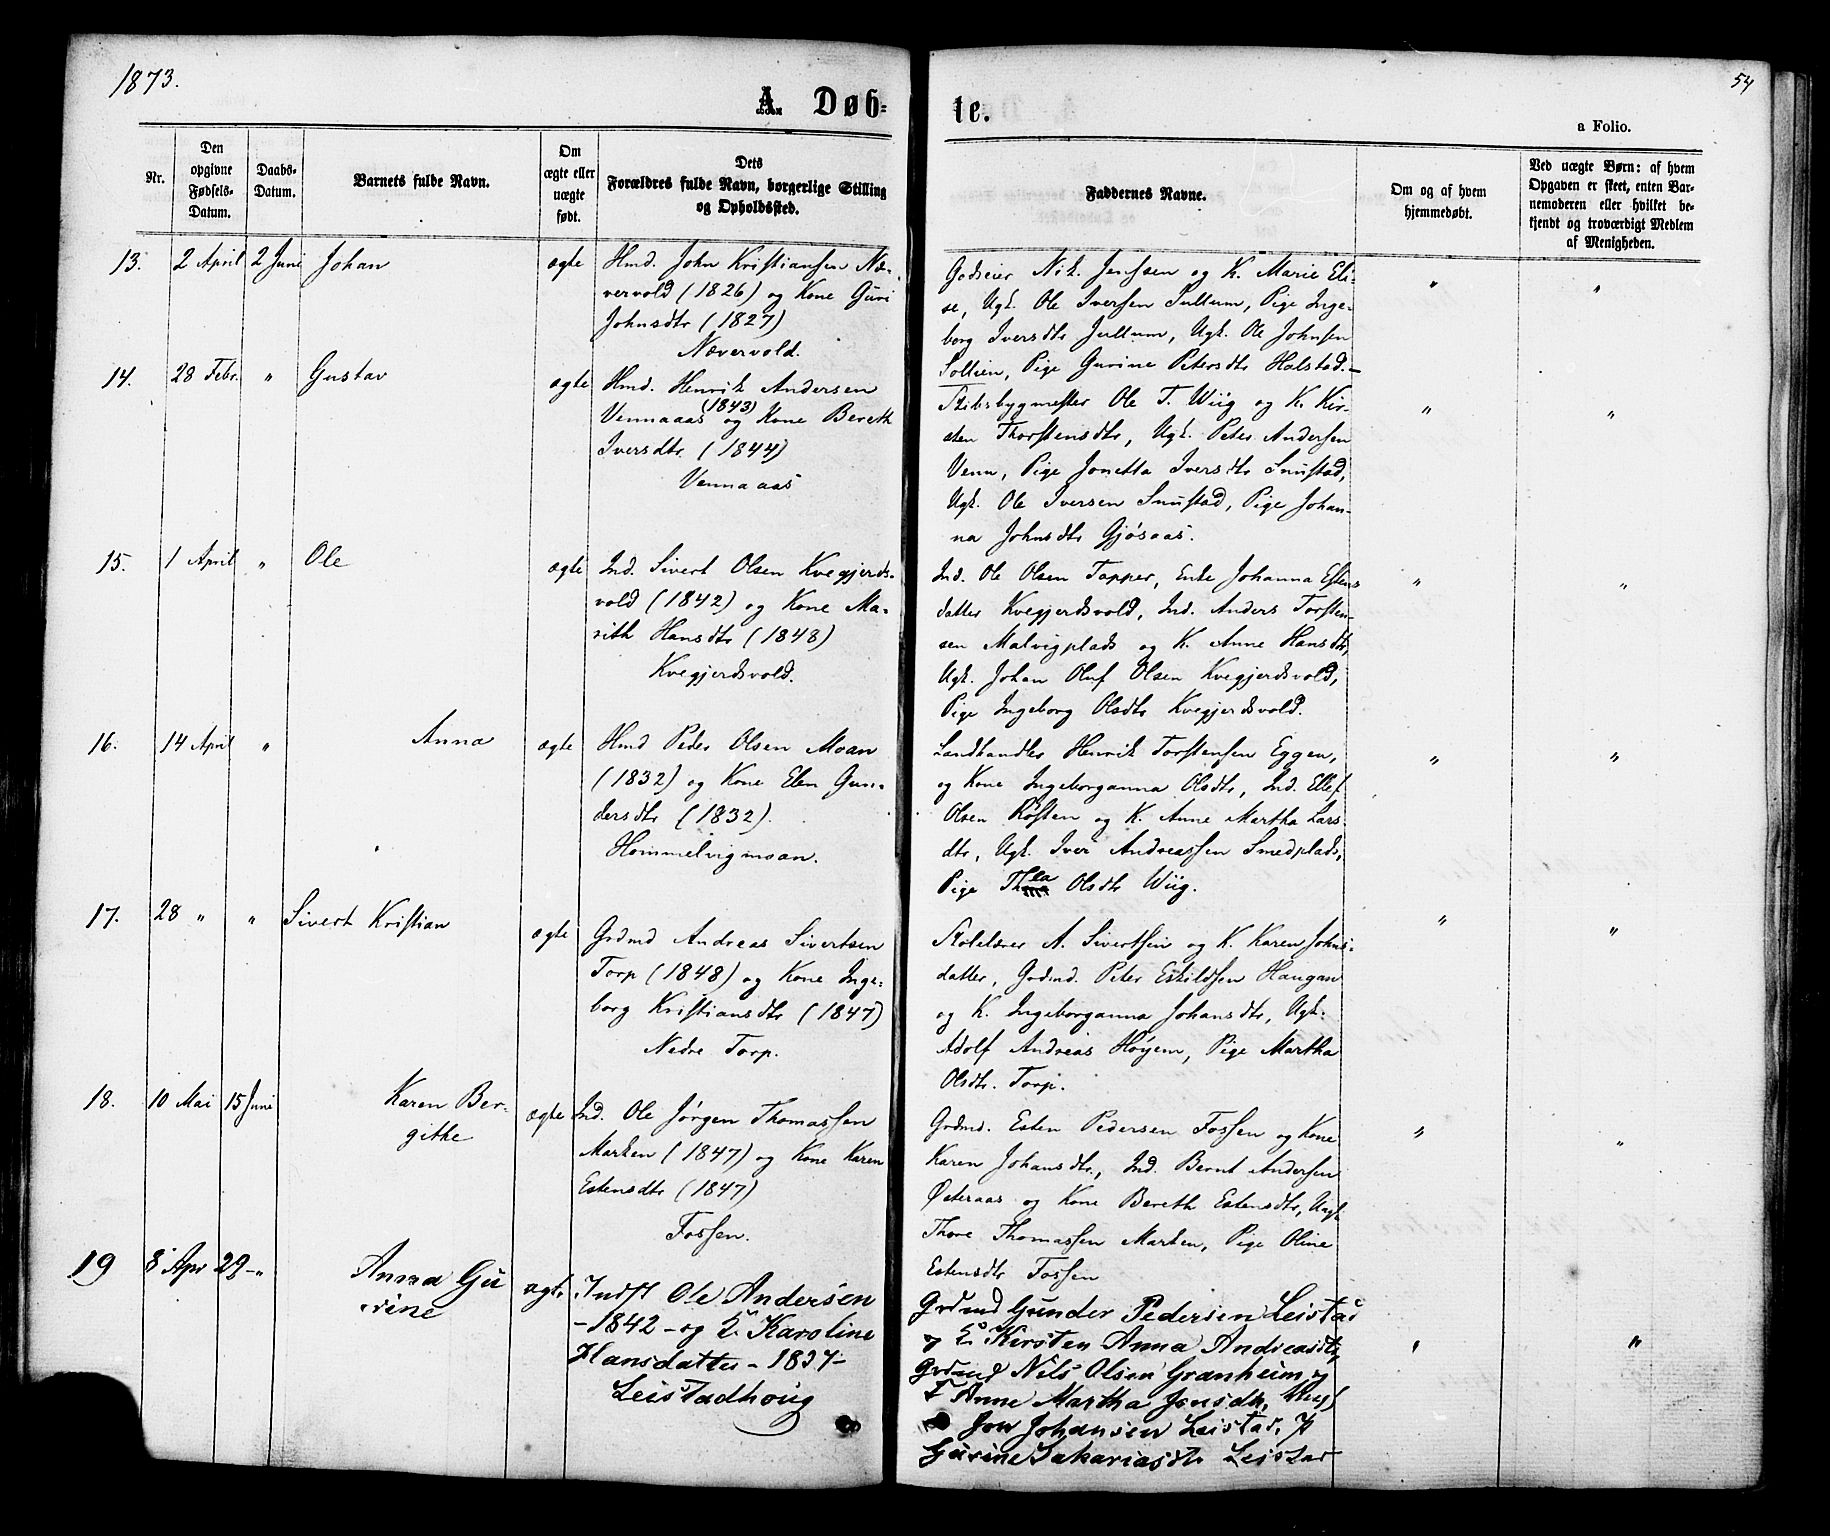 1873.
54
A. Døb-
te.
a Folio.
Nr.
Den
opgivne
Fødsels-
Datum.
Daabs-
Datum.
Barnets fulde Navn.
Om
ægte eller
uægte
født.
Dets
Forældres fulde Navn, borgerlige Stilling
og Opholdssted.
Faddernes Navne.
Om og af hvem
hjemmedøbt.
Ved uægte Børn: af hvem
Opgaven er skeet, enten Bar-
nemoderen eller hvilket be-
kjendt og troværdigt Medlem
af Menigheden.
13. 2 April 2 Juni Johan ægte
Hmd. John Kristiansen Næ-
vervold (1826) og Kone Guri
Johnsdtr (1827)
Nævervold.
Godseier Nik. Jenssen og K. Marie Eli-
se, Ugk. Ole Iversen Jullum, Pige Inge-
borg Iversdtr Jullum, Ugk. Ole Johnsen
Sollien, Pige Gurine Petersdtr Halstad.-
" "
14. 28 Febr. " Gustav ægte
Hmd. Henrik Andersen
Vennaaas (1843) og Kone Bereth
Iversdtr. (1844)
Vennaaas
Skibsbygmester Ole T. Wiig og K. Kir-
sten Thorstensdtr, Ugk. Peter Andersen
Venn, Pige Jonetta Iversdtr Snustad,
Ugk. Ole Iversen Snustad, Pige Johan-
na Johnsdtr Gjøsaas.
" "
15. 1 April " Ole ægte
Ind. Sivert Olsen Kvegjerds-
vold (1842) og Kone Ma-
rith Hansdtr (1848)
Kvegjerdsvold.
Ind. Ole Olsen Tapper, Enke Johanna Estens
datter Kvegjerdsvold, Ind. Anders Torsten-
sen Malvigplads og K. Anne Hansdtr,
Ugk. Johan Oluf Olsen Kvegjerdsvold,
Pige Ingeborg Olsdtr Kvegjerdsvold.
" "
16. 14 April " Anna ægte
Hmd Peder Olsen Moan
(1832) og Kone Elen Gun-
dersdtr (1832).
Hommelvigmoan.
Landhandler Henrik Torstensen Eggen,
og Kone Ingeborganna Olsdtr, Ind. Ellef
Olsen Røsten og K. Anne Martha Lars-
dtr, Ugk. Iver Andreassen Smedplads,
Pige Thea Olsdtr Wiig.
" "
17. 28 " " Sivert Kristian ægte
Grdmd Andreas Sivertsen
Torp (1848) og Kone Inge-
borg Kristiansdtr (1847)
Nedre Torp.
Skolelærer A. Sivertsen og K. Karen Johns-
datter, Grdmd. Peter Eskildsen Haugan
og K. Ingeborganna Johansdtr, Ugk.
Adolf Andreas Høyem, Pige Martha
Olsdtr. Torp.
" "
18. 10 Mai 15 Juni Karen Ber-
githe ægte
Ind. Ole Jørgen Thomassen
Marken (1847) og Kone Karen
Estensdtr (1847)
Fossen.
Grdmd. Esten Pedersen Fossen og Kone
Karen Johansdtr., Ind. Bernt Andersen
Østeraas og Kone Bereth Estensdtr, Ungk.
Thore Thomassen Marken, Pige Oline
Estensdtr Fossen
" "
19 8 Apr 29 -" Anna Gu
rine ægte
Indst Ole Andersen
- 1842 - og K. Karoline
Hansdatter - 1837 -
Leistadhoug
Grdmd Gunder Pedersen Leistad
og K Kirsten Anna Andreasdtr,
Grdmd Nils Olsen Granheim og
K Anne Martha Jonsdtr, Ungk
Jon Johansen Leistad, P
Gurine Sakariasdtr Leistad
" "